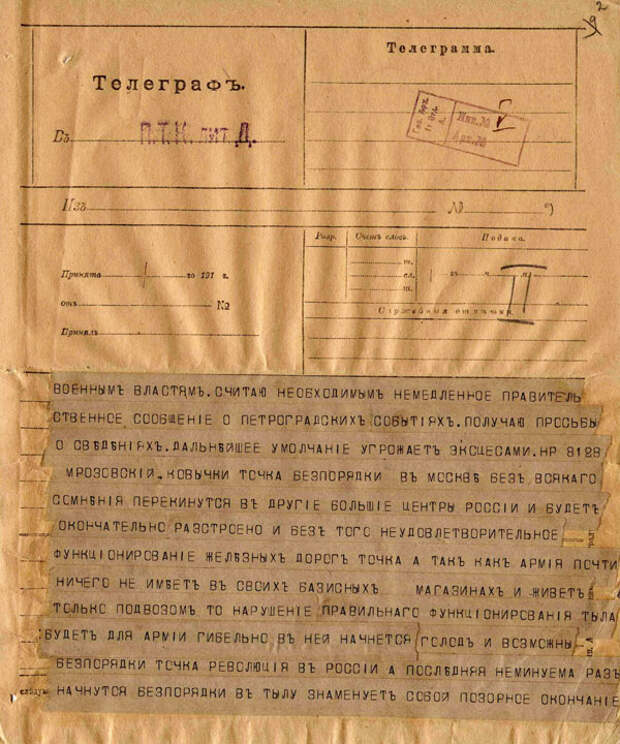 2
Телеграфъ.
Въ П.Т.К. лит Д.
Телеграмма.
Изъ № 9
Разр. Счетъ словъ. Подача.
Принята го 191 г.
отъ №
Принялъ
Служебныя отмѣтки.
II
ВОЕННЫМЪ ВЛАСТЯМ.СЧИТАЮ НЕОБХОДИМЫМЪ НЕМЕДЛЕННОЕ ПРАВИТЕЛЬ
СТВЕННОЕ СООБЩЕНІЕ О ПЕТРОГРАДСКИХЪ СОБЫТІЯХЪ.ПОЛУЧАЮ ПРОСЬБЫ
О СВЕДЕНІЯХЪ.ДАЛЬНЕЙШЕЕ УМОЛЧАНІЕ УГРОЖАЕТЪ ЭКСЦЕСАМИ.НР 8128
МРОЗОВСКІЙ.КОВЫЧКИ ТОЧКА БЕЗПОРЯДКИ ВЪ МОСКВѢ БЕЗЪ ВСЯКАГО
СОМНѢНІЯ ПЕРЕКИНУТСЯ ВЪ ДРУГІЕ БОЛЬШІЕ ЦЕНТРЫ РОССІИ И БУДЕТЪ
ОКОНЧАТЕЛЬНО РАЗСТРОЕНО И БЕЗЪ ТОГО НЕУДОВЛЕТВОРИТЕЛЬНОЕ
ФУНКЦІОНИРОВАНІЕ ЖЕЛѢЗНЫХЪ ДОРОГЪ ТОЧКА А ТАКЪ КАКЪ АРМІЯ ПОЧТИ
НИЧЕГО НЕ ИМѢЕТЪ ВЪ СВОИХЪ БАЗИСНЫХЪ МАГАЗИНАХЪ И ЖИВЕТЪ
ТОЛЬКО ПОДВОЗОМЪ ТО НАРУШЕНІЕ ПРАВИЛЬНАГО ФУНКЦІОНИРОВАНІЯ ТЫЛА
БУДЕТЪ ДЛЯ АРМІИ ГИБЕЛЬНО ВЪ НЕЙ НАЧНЕТСЯ ГОЛОДЪ И ВОЗМОЖНЫ
БЕЗПОРЯДКИ ТОЧКА РЕВОЛЮЦІЯ ВЪ РОССІИ А ПОСЛѢДНЯЯ НЕМИНУЕМА РАЗЪ
НАЧНУТСЯ БЕЗПОРЯДКИ ВЪ ТЫЛУ ЗНАМЕНУЕТЪ СОБОЙ ПОЗОРНОЕ ОКОНЧАНІЕ